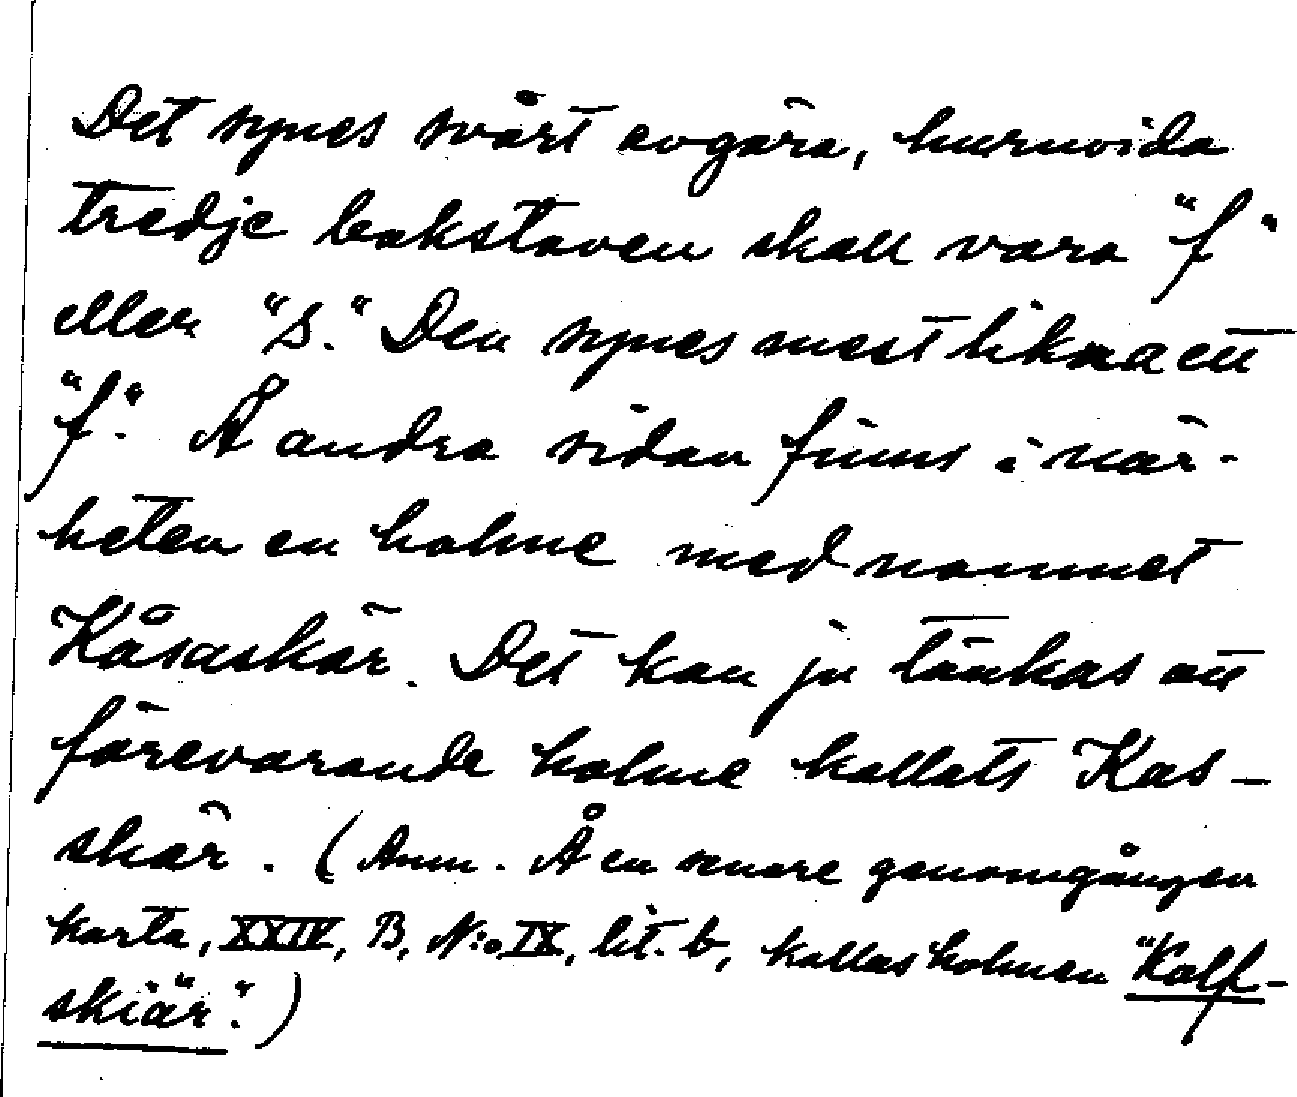 Det synes svårt avgöra, huruvida
tredje bokstaven skall vara "f"
eller "s." Den synes mest likna ett
"f". Å andra sidan finns i när-
heten en holme med namnet
Kåsaskär. Det kan ju tänkas att
förevarande holme kallats Kas-
skär. (Anm. Å en senare genomgången
karta, XXIV, B, N:o IX, lit. b, kallas holmen "Kalf-
skiär".)